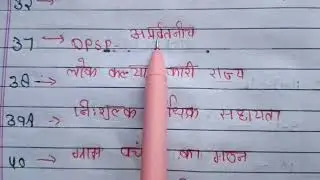 32 →
37 → DPSP- अप्रवर्तनीय
38 → लोक कल्या कारी राज्य
39A → निःशुल्क धिक सहायता
40 → ग्राम पंच का गठन